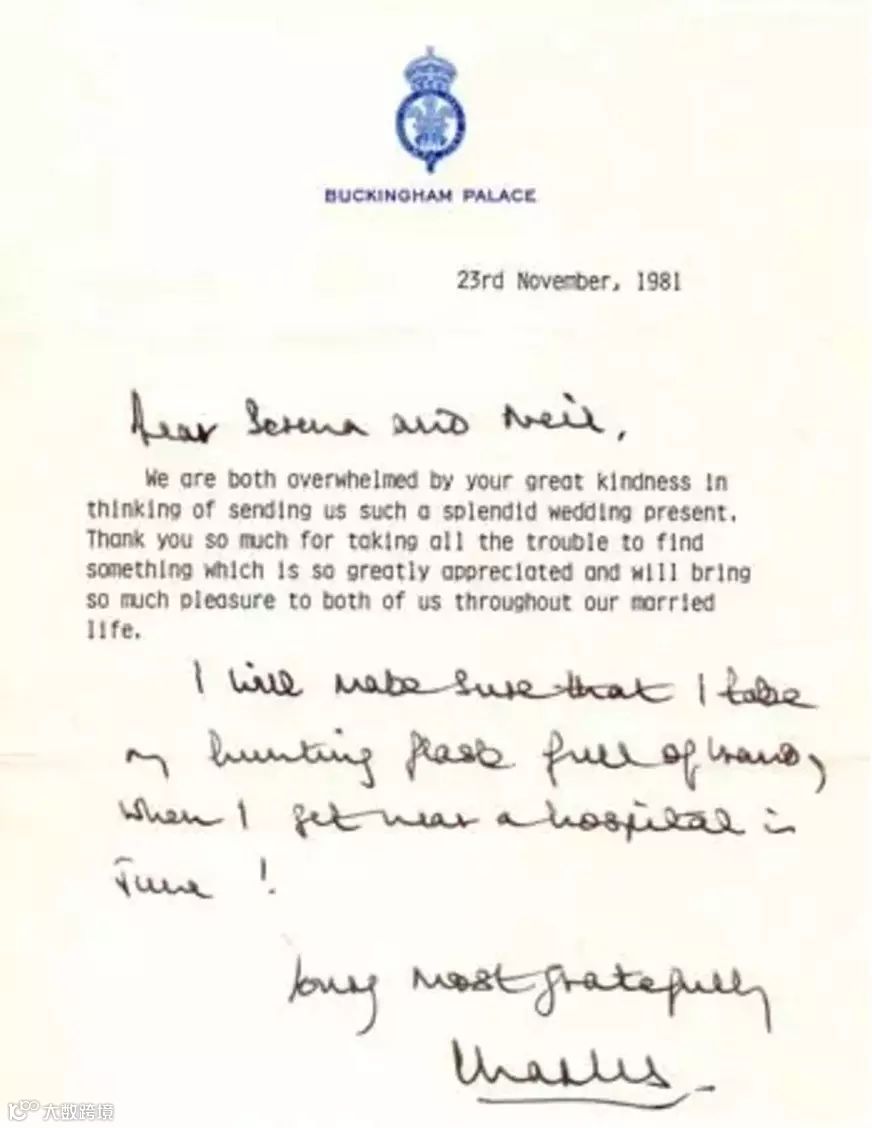 BUCKINGHAM PALACE
23rd November, 1981
Dear Serena and Neil,
We are both overwhelmed by your great kindness in
thinking of sending us such a splendid wedding present.
Thank you so much for taking all the trouble to find
something which is so greatly appreciated and will bring
so much pleasure to both of us throughout our married
life.
I will make sure that I take
my hunting flask full of brandy
when I get near a hospital in
June !
Yours most gratefully
Charles
大数跨境